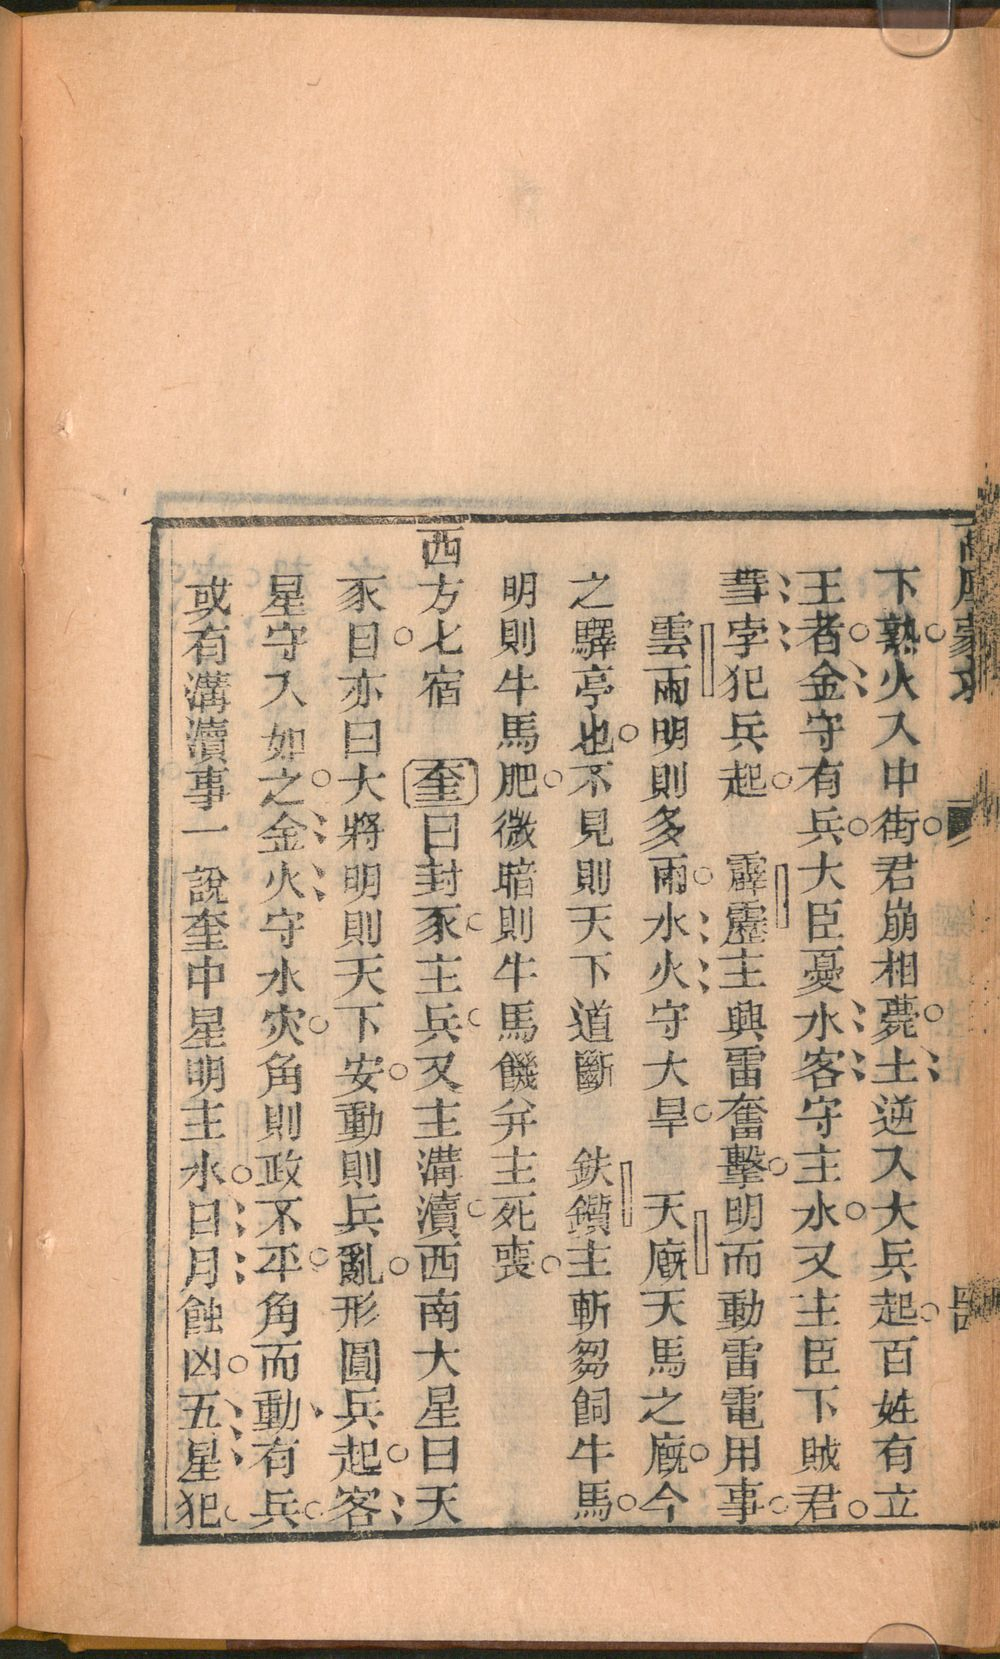 下熟火入中街君崩相薨土逆入大兵起百姓有立
王者金守有兵大臣憂水客守主水又主臣下賊君
彗孛犯兵起　霹靂主興雷奮擊明而動雷電用事
雲雨明則多雨水火守大旱　天廐天馬之廐今
之驛亭也不見則天下道斷　鈇鑕主斬芻飼牛馬
明則牛馬肥微暗則牛馬饑并主死喪
西方七宿　奎曰封豕主兵又主溝瀆西南大星曰天
豕目亦曰大將明則天下安動則兵亂形圓兵起客
星守入如之金火守水灾角則政不平角而動有兵
或有溝瀆事一說奎中星明主水日月蝕凶五星犯